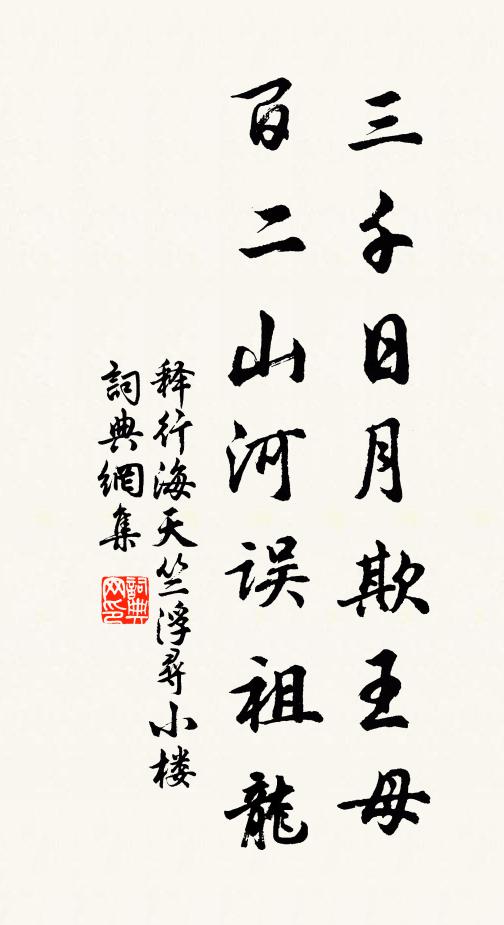 三千日月欺王母
百二山河误祖龍
释行海天竺浮尋小楼
詞典網集
詞典网印